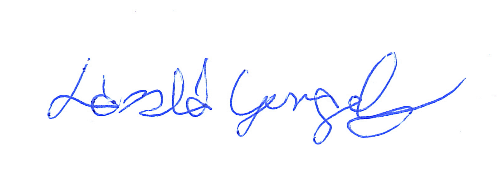 László Gergely